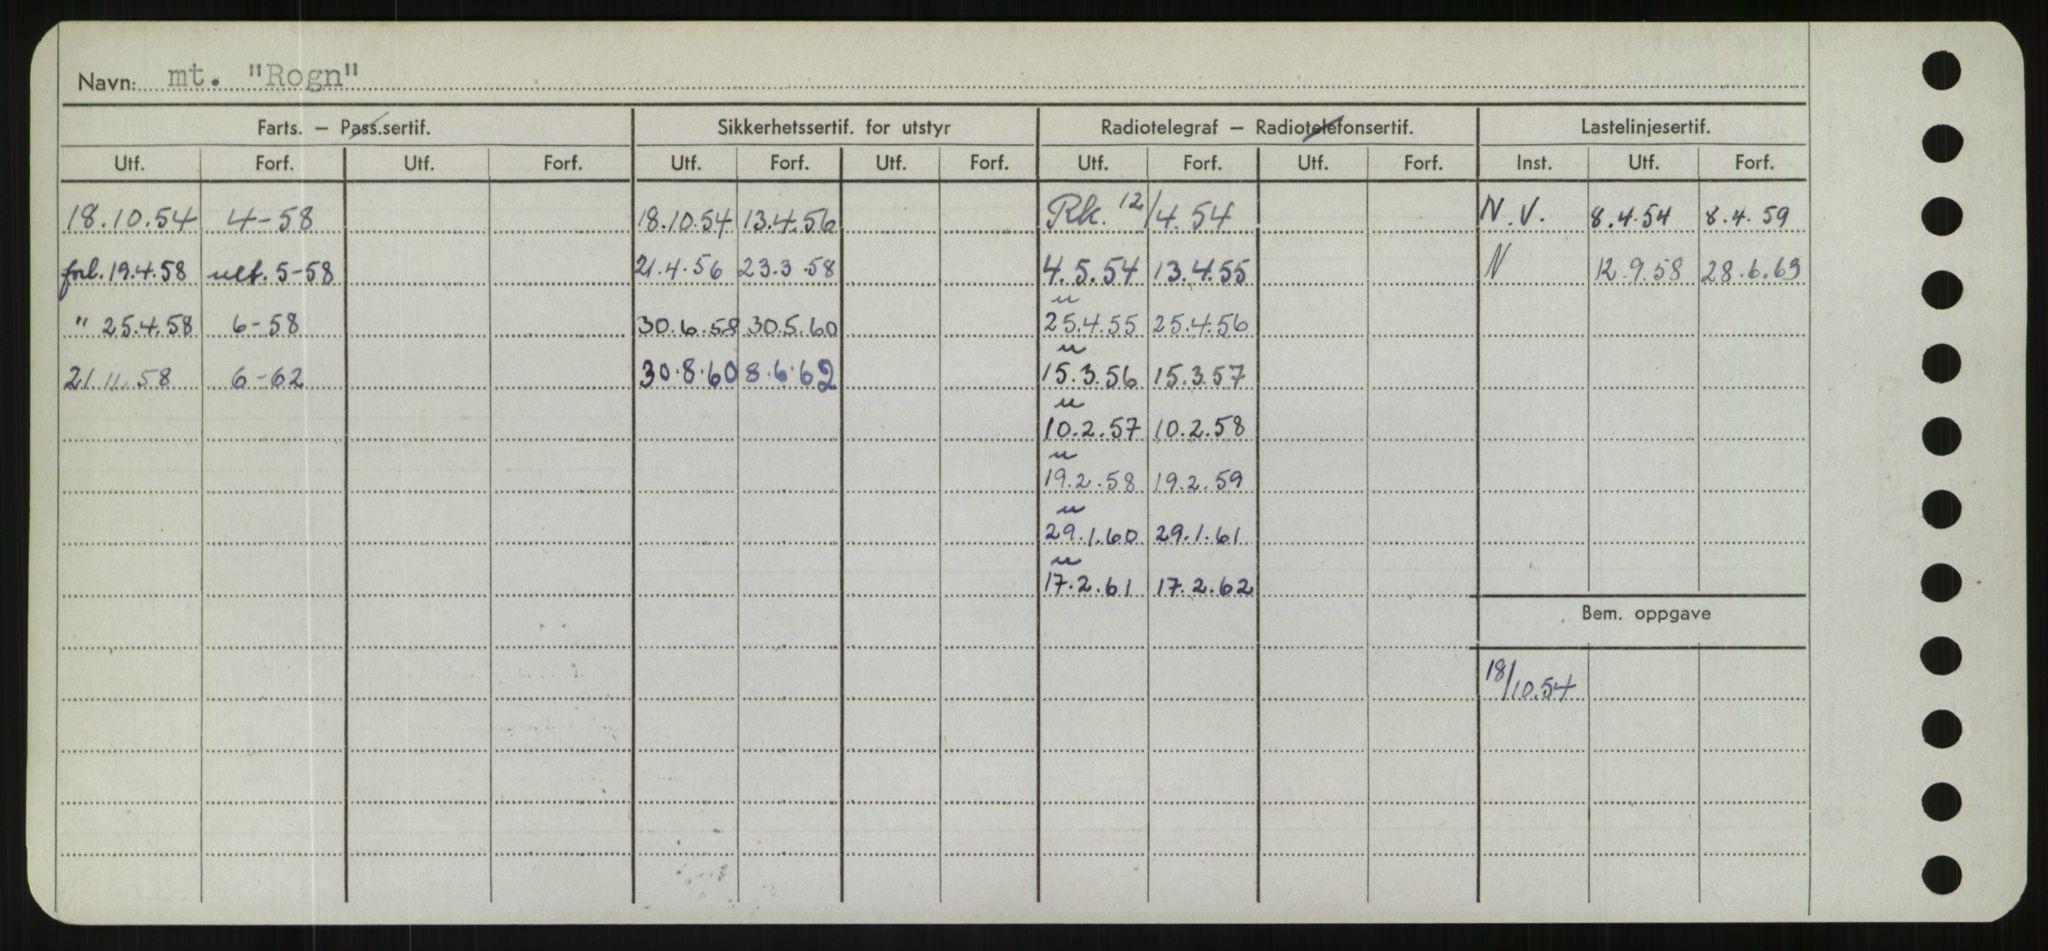 Navn: mt. "Rogn"
Farts. – Pass.sertif. Sikkerhetssertif. for utstyr Radiotelegraf – Radiotelefonsertif. Lastelinjesertif.
Utf. Forf. Utf. Forf. Utf. Forf. Utf. Forf. Utf. Forf. Utf. Forf. Inst. Utf. Forf.
18.10.54 4-58 18.10.54 13.4.56 Rk. 12/4.54 N.V. 8.4.54 8.4.59
forl. 19.4.58 utl. 5-58 21.4.56 23.3.58 4.5.54 13.4.55 N 12.9.58 28.6.63
" 25.4.58 6-58 30.6.58 30.5.60 u 25.4.55 25.4.56
21.11.58 6-62 30.8.60 8.6.62 u 15.3.56 15.3.57
u 10.2.57 10.2.58
u 19.2.58 19.2.59
u 29.1.60 29.1.61
u 17.2.61 17.2.62
Bem. oppgave
18/10.54